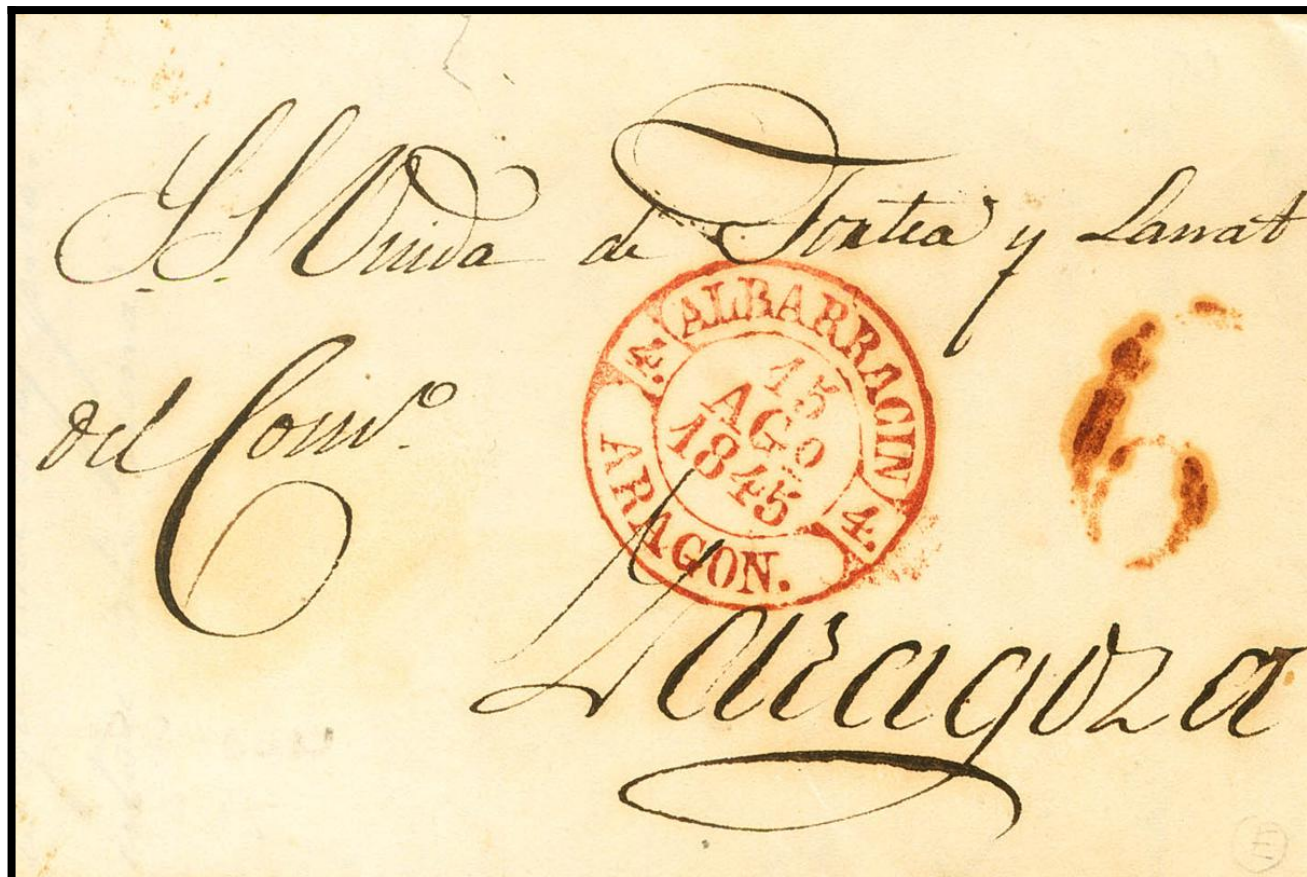 S.S. Viuda de Fortea y Lanat
del Com.º
4. ALBARRACIN 4.
15
AGO
1845
ARAGON.
6
Zaragoza
E